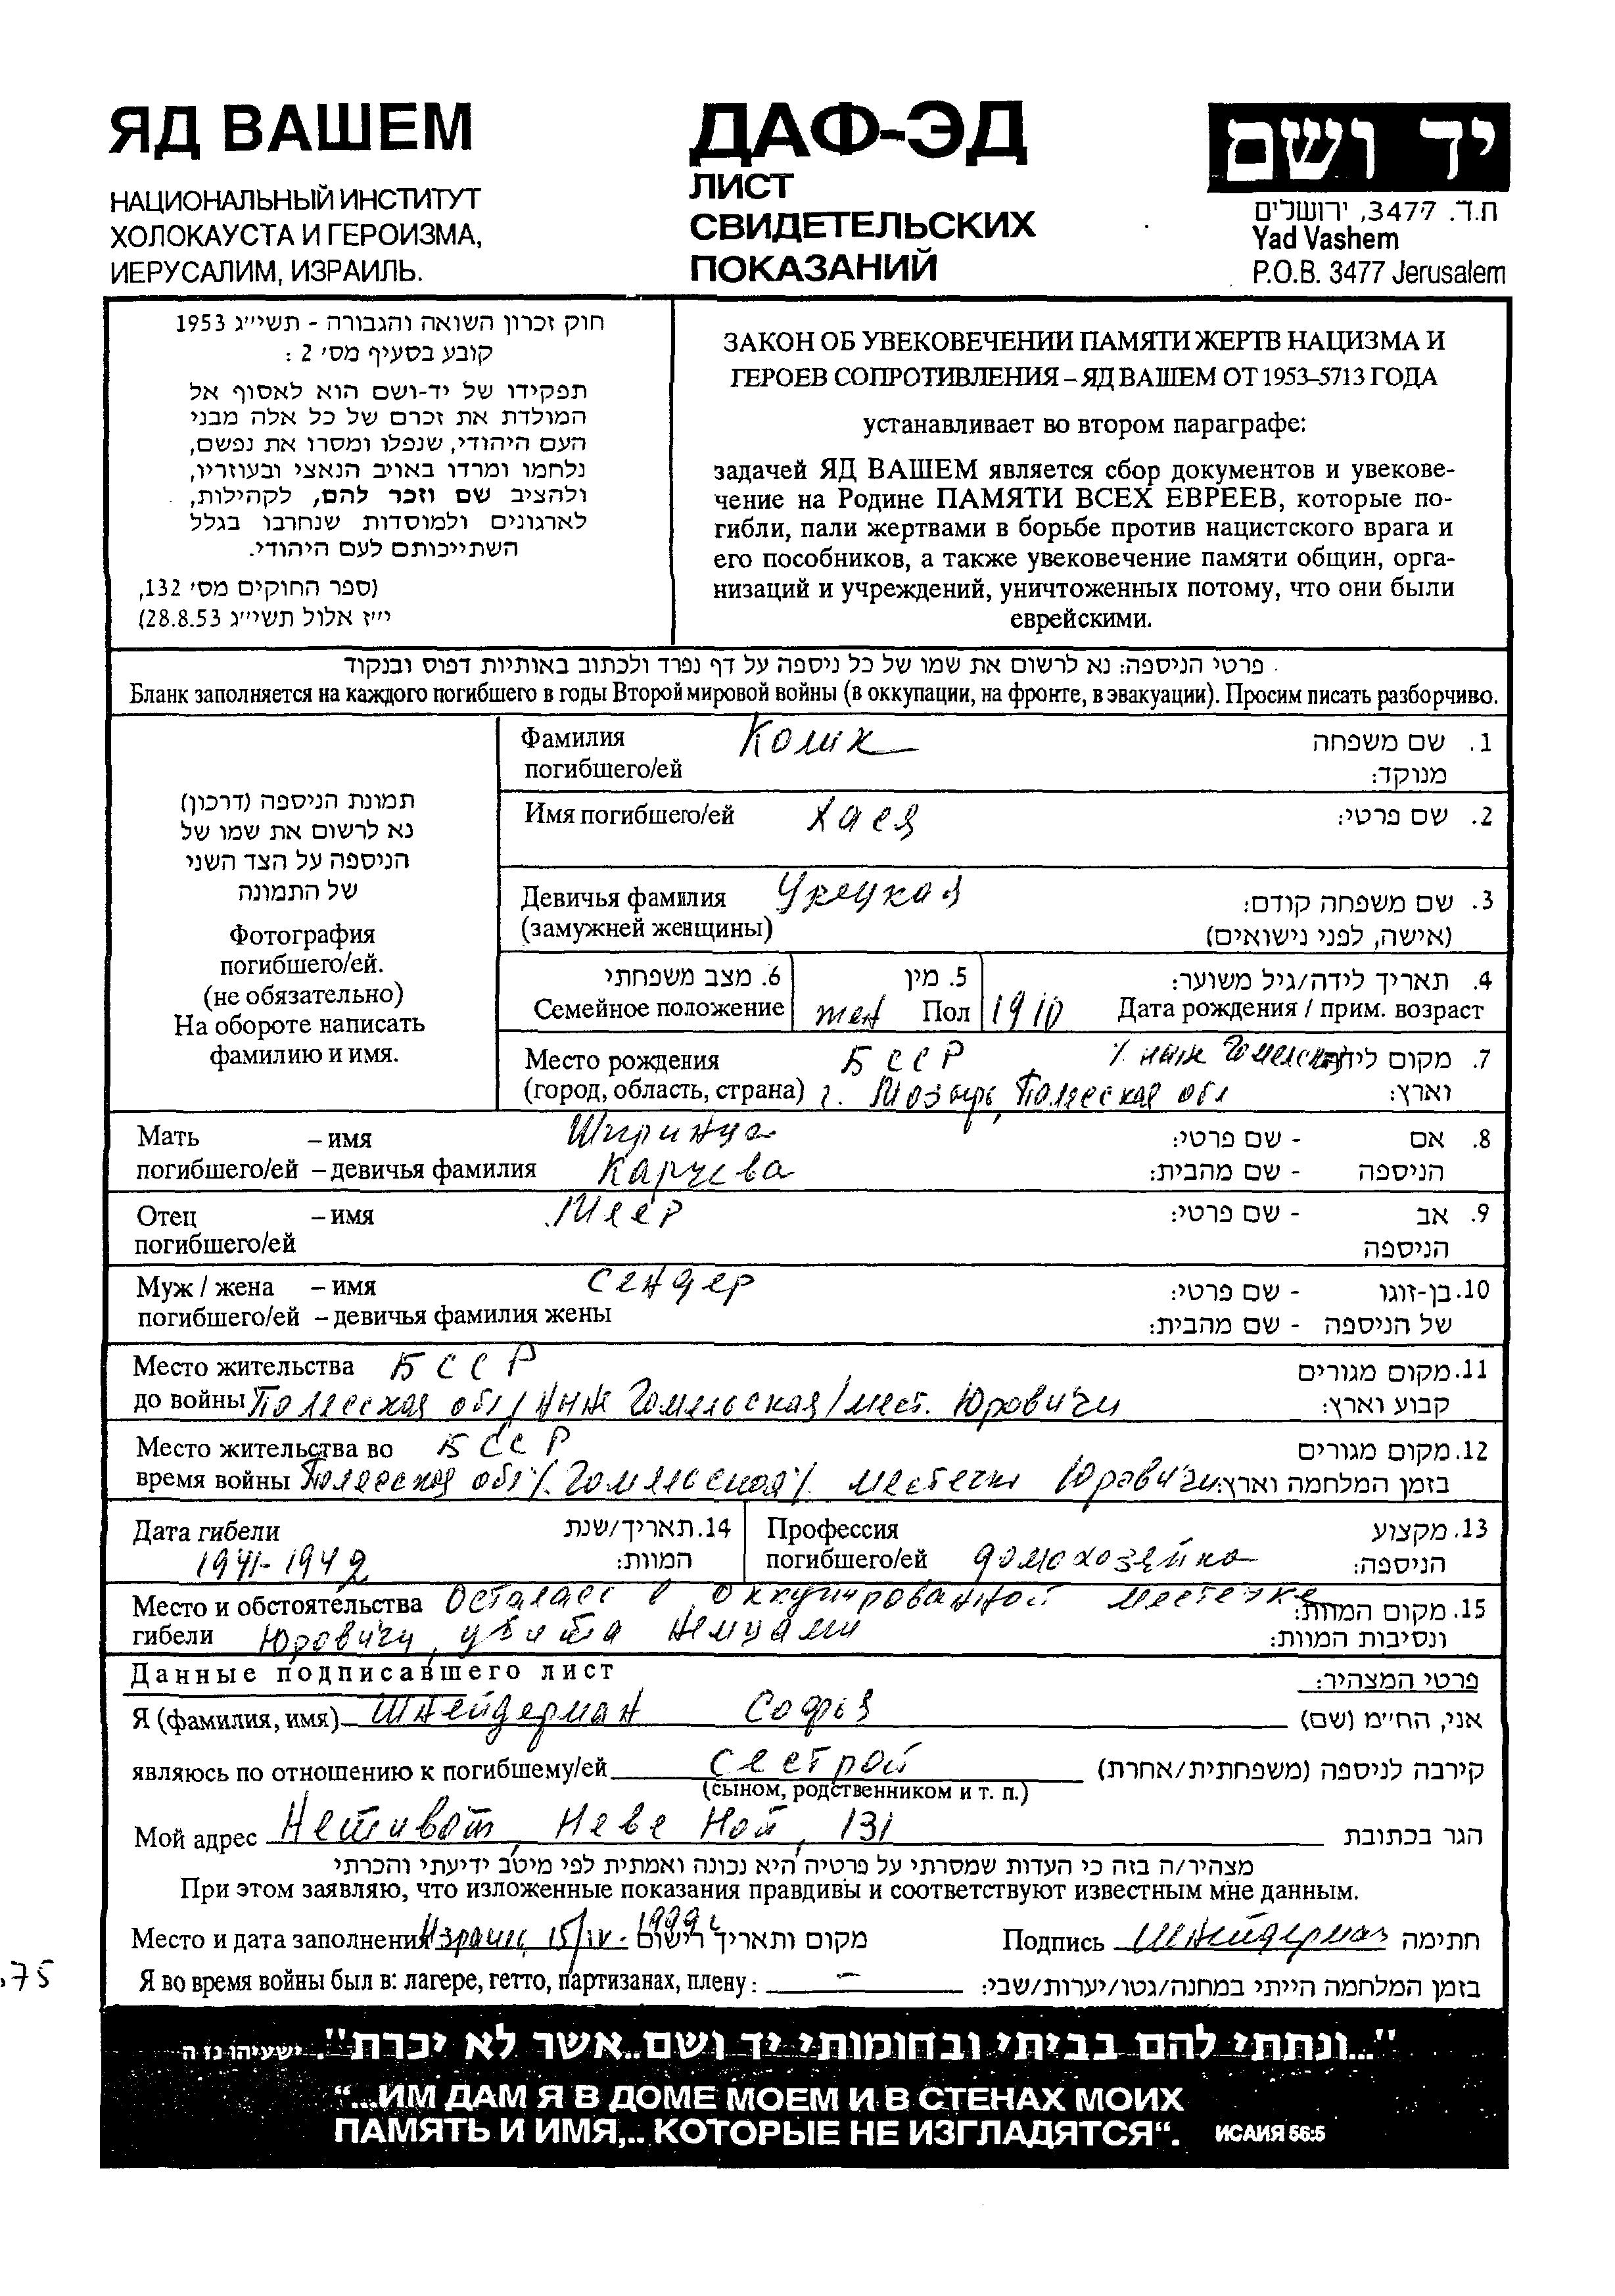 ЯД ВАШЕМ
НАЦИОНАЛЬНЫЙ ИНСТИТУТ
ХОЛОКАУСТА И ГЕРОИЗМА,
ИЕРУСАЛИМ, ИЗРАИЛЬ.
ДАФ-ЭД
ЛИСТ
СВИДЕТЕЛЬСКИХ
ПОКАЗАНИЙ
יד ושם
ת.ד. 3477, ירושלים
Yad Vashem
P.O.B. 3477 Jerusalem
חוק זכרון השואה והגבורה - תשי״ג 1953
קובע בסעיף מס׳ 2 :
תפקידו של יד-ושם הוא לאסוף אל
המולדת את זכרם של כל אלה מבני
העם היהודי, שנפלו ומסרו את נפשם,
נלחמו ומרדו באויב הנאצי ובעוזריו,
ולהציב שם וזכר להם, לקהילות,
לארגונים ולמוסדות שנחרבו בגלל
השתייכותם לעם היהודי.
(ספר החוקים מס׳ 132,
י״ז אלול תשי״ג 28.8.53)
ЗАКОН ОБ УВЕКОВЕЧЕНИИ ПАМЯТИ ЖЕРТВ НАЦИЗМА И
ГЕРОЕВ СОПРОТИВЛЕНИЯ – ЯД ВАШЕМ ОТ 1953–5713 ГОДА
устанавливает во втором параграфе:
задачей ЯД ВАШЕМ является сбор документов и увекове-
чение на Родине ПАМЯТИ ВСЕХ ЕВРЕЕВ, которые по-
гибли, пали жертвами в борьбе против нацистского врага и
его пособников, а также увековечение памяти общин, орга-
низаций и учреждений, уничтоженных потому, что они были
еврейскими.
פרטי הניספה: נא לרשום את שמו של כל ניספה על דף נפרד ולכתוב באותיות דפוס ובנקוד
Бланк заполняется на каждого погибшего в годы Второй мировой войны (в оккупации, на фронте, в эвакуации). Просим писать разборчиво.
תמונת הניספה (דרכון)
נא לרשום את שמו של
הניספה על הצד השני
של התמונה
Фотография
погибшего/ей.
(не обязательно)
На обороте написать
фамилию и имя.
Фамилия Колик 1. שם משפחה
погибшего/ей מנוקד:
Имя погибшего/ей Хаея 2. שם פרטי:
Девичья фамилия Урецкая 3. שם משפחה קודם:
(замужней женщины) (אישה, לפני נישואים)
6. מצב משפחתי 5. מין 4. תאריך לידה/גיל משוער:
Семейное положение жен Пол 1910 Дата рождения / прим. возраст
Место рождения БССР / ныне Гомельская 7. מקום לידה
(город, область, страна) г. Мозырь, Полесская обл וארץ:
Мать – имя Ширинца 8. אם - שם פרטי:
погибшего/ей – девичья фамилия Карчева הניספה - שם מהבית:
Отец – имя Меер 9. אב - שם פרטי:
погибшего/ей הניספה
Муж / жена – имя Сендер 10. בן-זוגו - שם פרטי:
погибшего/ей – девичья фамилия жены של הניספה - שם מהבית:
Место жительства БССР 11. מקום מגורים
до войны Полесская обл / ныне Гомельская / мест. Юровичи קבוע וארץ:
Место жительства во БССР 12. מקום מגורים
время войны Полесская обл /. Гомельская /. местечко Юровичи בזמן המלחמה וארץ:
Дата гибели 14. תאריך/שנת Профессия 13. מקצוע
1941-1942 המוות: погибшего/ей домохозяйка הניספה:
Место и обстоятельства Осталась в оккупированной местечке 15. מקום המוות:
гибели Юровичи, убита немцами ונסיבות המוות:
Данные подписавшего лист פרטי המצהיר:
Я (фамилия, имя) Шнейдерман Софья אני, הח״מ (שם)
являюсь по отношению к погибшему/ей сестрой קירבה לניספה (משפחתית/אחרת)
(сыном, родственником и т. п.)
Мой адрес Нетивот, Неве Ной, 131 הגר בכתובת
מצהיר/ה בזה כי העדות שמסרתי על פרטיה היא נכונה ואמתית לפי מיטב ידיעתי והכרתי
При этом заявляю, что изложенные показания правдивы и соответствуют известным мне данным.
Место и дата заполнения Израиль 15/IV- 1999г מקום ותאריך רישום Подпись Шнейдерман חתימה
Я во время войны был в: лагере, гетто, партизанах, плену: – בזמן המלחמה הייתי במחנה/גטו/יערות/שבי:
.75
"...ונתתי להם בביתי ובחומותי יד ושם..אשר לא יכרת". ישעיהו נו ה
“...ИМ ДАМ Я В ДОМЕ МОЕМ И В СТЕНАХ МОИХ
ПАМЯТЬ И ИМЯ,.. КОТОРЫЕ НЕ ИЗГЛАДЯТСЯ“. ИСАИЯ 56:5